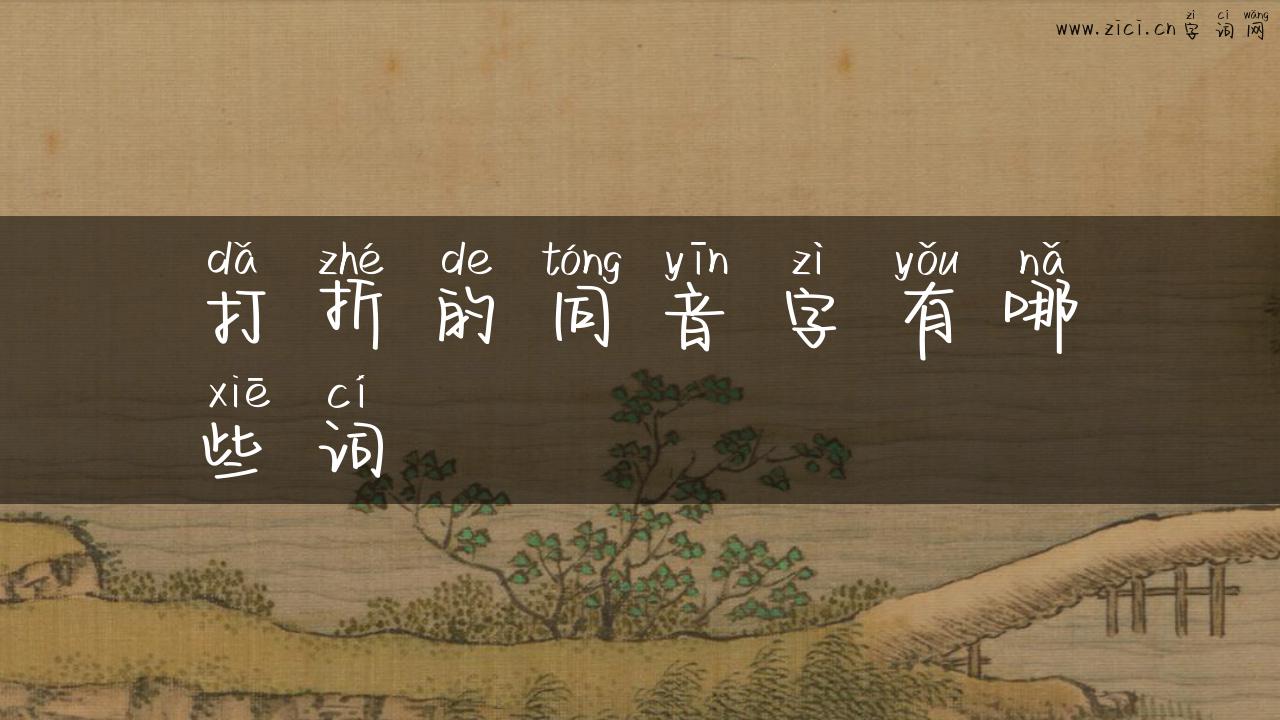 zì cí wǎng
www.zici.cn 字词网
dǎ zhé de tóng yīn zì yǒu nǎ
打折的同音字有哪
xiē cí
些词